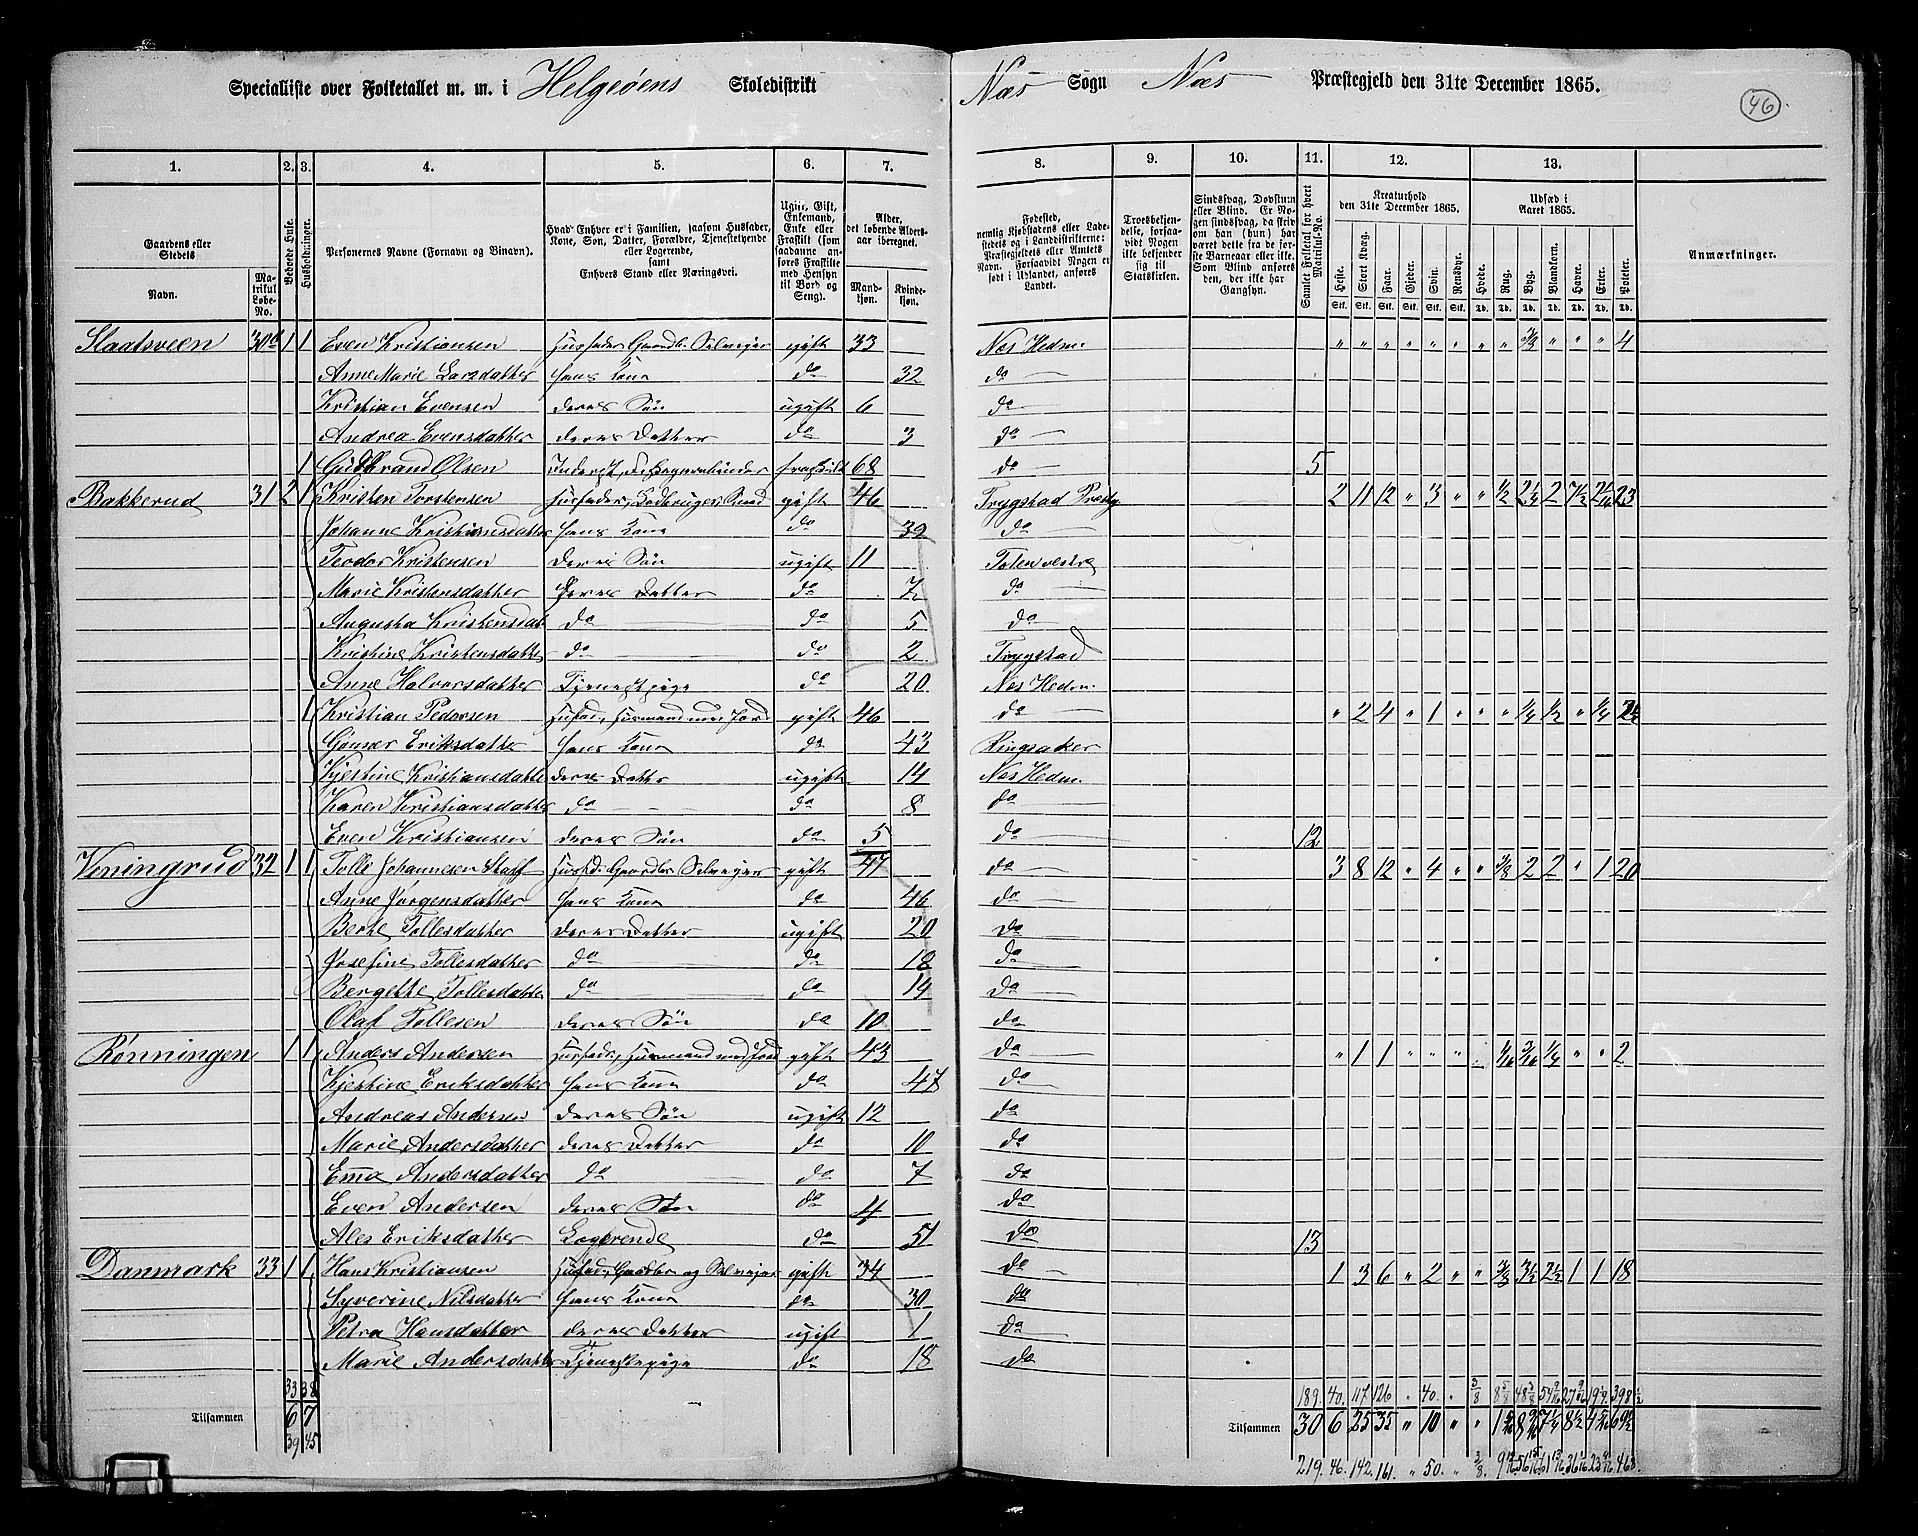 Specialliste over Folketallet m. m. i Helgeöens Skoledistrikt Næs Sogn Næs Præstegjeld den 31te December 1865. 46
1. 2. 3. 4. 5. 6. 7. 8. 9. 10. 11. 12. 13.
Gaardens eller Stedets Navn. Matrikul Løbe-No. Beboede Huse. Husholdninger. Personernes Navne (Fornavn og Binavn). Hvad Enhver er i Familien, saasom Husfader, Kone, Søn, Datter, Forældre, Tjenestetyende eller Logerende, samt Enhvers Stand eller Næringsvei. Ugift, Gift, Enkemand, Enke eller Fraskilt (som saadanne anføres Fraskilte med Hensyn til Bord og Seng). Alder, det løbende Aldersaar iberegnet. Mandkjøn. Kvindekjøn.
Fødested, nemlig Kjøbstadens eller Ladestedets og i Landdistrikterne: Præstegjeldets eller Amtets Navn. Forsaavidt Nogen er født i Udlandet, anføres Landet. Troesbekjendelse, forsaavidt Nogen ikke bekjender sig til Statskirken. Sindssvag, Døvstum eller Blind. Er Nogen sindssvag, da skrives om han (hun) har været dette fra de første Barneaar eller ikke. Som Blind ansøres den, der ikke har Gangsyn. Samlet Folketal for hvert Matrikul-No. Kreaturhold den 31te December 1865. Udsæd i Aaret 1865. Anmærkninger.
Heste. Stort Kvæg. Faar. Gjeder. Svin. Rensdyr. Hvede. Rug. Byg. Blandkorn. Havre. Erter. Poteter.
Stk. Stk. Stk. Stk. Stk. Stk. Td. Td. Td. Td. Td. Td. Td.
Staatsveen 30 1 1 Even Kristiansen Husfader Gaardbr. Selveier gift 33 Næs Hedm. " " " " " " " " 3/8 " " " 4
Anne Marie Larsdatter hans Kone do 32 do
Kristian Evensen deres Søn ugift 6 do
Andrea Evensdatter deres Datter do 3 do
1 Gudbrand Olsen fraskilt 68 do 5
Bakkerud 31 2 1 Kristen Torstensen Husfader, gift 46 Trygstad 2 11 12 " 3 " " 1/2 2 1/4 2 7 1/2 23
Johanne hans Kone do 39 do
Teodor Kristensen deres Søn ugift 11 Toten vestre
Marie Kristensdatter deres Datter do 7 do
Augusta Kristensdat do do 5 do
Kristine Kristensdatt do do 2 Trygstad
Anne Halvorsdatter Tjenestpige do 20 Næs Hedm.
1 Kristian Pedersen Husfad., Husmand med Jord gift 46 do " 2 4 " 1 " " " 1/4 1/2 " 1/4 2 1/2
Eriksdatter hans Kone do 43 Ringsaker
Kjestine Kristiansdatte deres Datter ugift 14 Næs Hedm.
Karen Kristiansdatter do do 8 do
Even Kristiansen deres Søn do 5 do 12
Veningrud 32 1 1 Tolle Johannesen Husfd. Gaardbr. Selveier gift 47 do 3 8 12 " 4 " " 3/8 2 2 " 1 20
Anne Jørgensdatter hans Kone do 46 do
Berte Tollesdatter deres Datter ugift 20 do
Josefine Tollesdatter do do 18 do
Bergette Tollesdatte do do 14 do
Olaf Tollesen deres Søn do 10 do
Rønningen 1 1 Anders Andersen Husfader, Husmand med Jord gift 43 do " 1 1 " " " 1/16 3/16 1/4 " " 2
Kjestine Eriksdatter hans Kone do 47 do
Andreas Andersen deres Søn ugift 12 do
Marie Andersdatter deres Datter do 10 do
Ema Andersdatter do do 7 do
Even Andersen deres Søn do 4 do
Ales Eriksdatter Logerende do 51 do 13
Danmark 33 1 1 Hans Kristiansen Husfad., Gaardbr og Selveier gift 34 do 1 3 6 " 2 " " 3/8 3 1/2 2 1/2 1 1 18
Syverine Nilsdatter hans Kone do 30 do
Petra Hansdatter deres Datter ugift 1 do
Marie Andersdatter Tjenestepige do 18 do
33 38 189. 40. 117 126 " 40. " 3/8 398 1/2
Tilsammen 6 7 Tilsammen 30 6 25 35 " 10 " " 8 1/2 69 1/2
39 45 219. 46. 142. 161. " 50. " 3/8. 468.